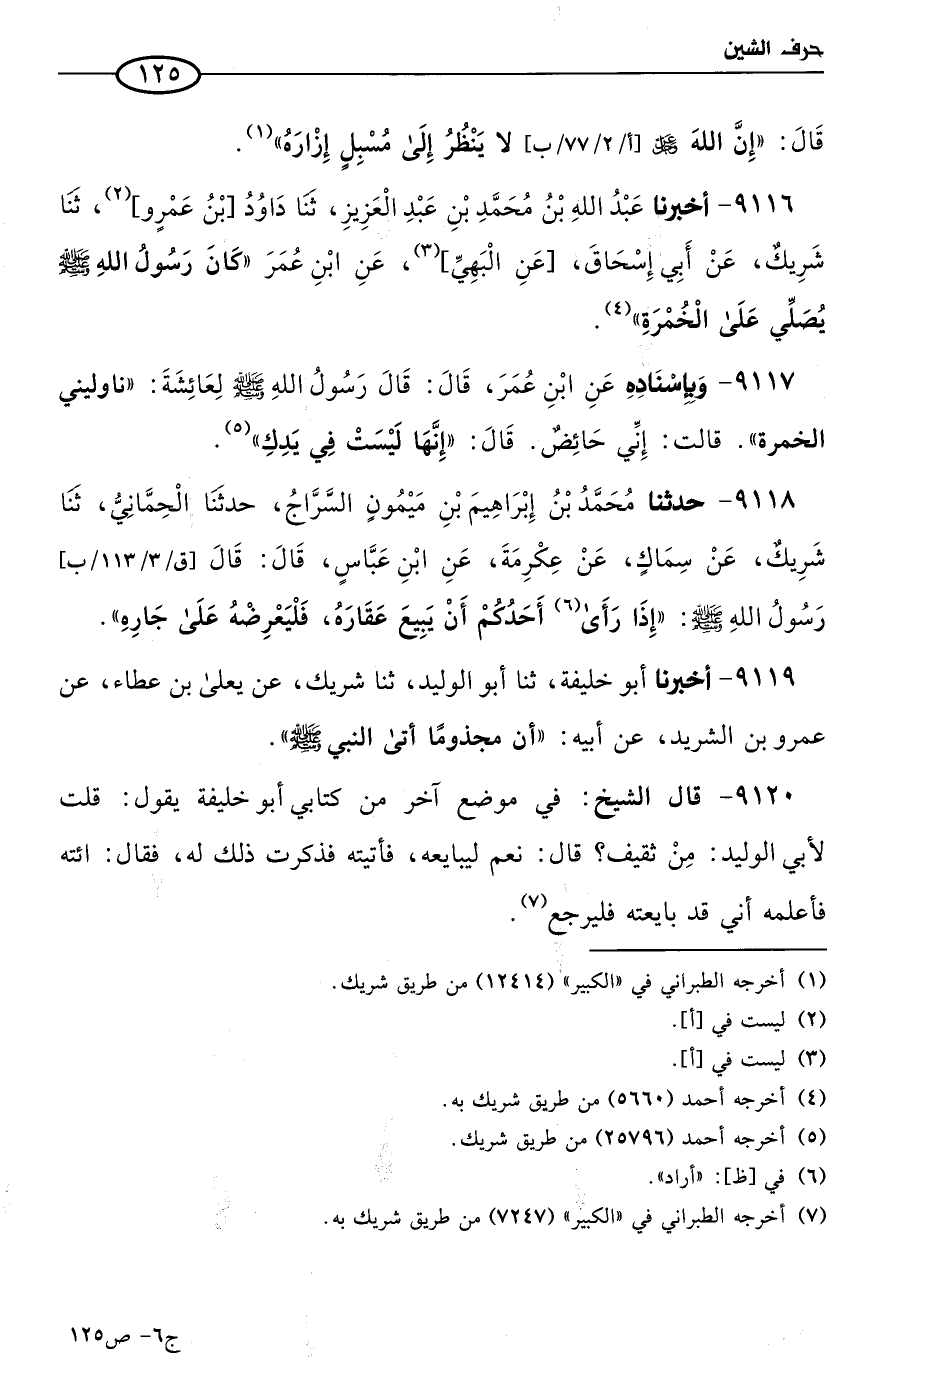 حرف الشين
١٢٥
قَالَ: «إِنَّ اللهَ ﷻ [أ/٢/٧٧/ب] لا يَنْظُرُ إِلَىٰ مُسْبِلٍ إِزْارَهُ»(١).
٩١١٦- أخبرنا عَبْدُ اللهِ بْنُ مُحَمَّدِ بْنِ عَبْدِ الْعَزِيزِ، ثَنَا دَاوُدُ [بْنُ عَمْرٍو](٢)، ثَنَا
شَرِيكٌ، عَنْ أَبِي إِسْحَاقَ، [عَنِ الْبَهِيِّ](٣)، عَنِ ابْنِ عُمَرَ «كَانَ رَسُولُ اللهِ ﷺ
يُصَلِّي عَلَىٰ الْخُمْرَةِ»(٤).
٩١١٧- وَبِإِسْنَادِهِ عَنِ ابْنِ عُمَرَ، قَالَ: قَالَ رَسُولُ اللهِ ﷺ لِعَائِشَةَ: «ناوليني
الخمرة». قالت: إِنِّي حَائِضٌ. قَالَ: «إِنَّهَا لَيْسَتْ فِي يَدِكِ»(٥).
٩١١٨- حدثنا مُحَمَّدُ بْنُ إِبْرَاهِيمَ بْنِ مَيْمُونٍ السَّرَّاجُ، حدثَنَا الْحِمَّانِيُّ، ثَنَا
شَرِيكٌ، عَنْ سِمَاكٍ، عَنْ عِكْرِمَةَ، عَنِ ابْنِ عَبَّاسٍ، قَالَ: قَالَ [ق/٣/١١٣/ب]
رَسُولُ اللهِ ﷺ: «إِذَا رَأَىٰ(٦) أَحَدُكُمْ أَنْ يَبِيعَ عَقَارَهُ، فَلْيَعْرِضْهُ عَلَىٰ جَارِهِ».
٩١١٩- أخبرنا أبو خليفة، ثنا أبو الوليد، ثنا شريك، عن يعلىٰ بن عطاء، عن
عمرو بن الشريد، عن أبيه: «أن مجذومًا أتىٰ النبي ﷺ».
٩١٢٠- قال الشيخ: في موضع آخر من كتابي أبو خليفة يقول: قلت
لأبي الوليد: مِنْ ثقيف؟ قال: نعم ليبايعه، فأتيته فذكرت ذلك له، فقال: ائته
فأعلمه أني قد بايعته فليرجع(٧).
(١) أخرجه الطبراني في «الكبير» (١٢٤١٤) من طريق شريك.
(٢) ليست في [أ].
(٣) ليست في [أ].
(٤) أخرجه أحمد (٥٦٦٠) من طريق شريك به.
(٥) أخرجه أحمد (٢٥٧٩٦) من طريق شريك.
(٦) في [ظ]: «أراد».
(٧) أخرجه الطبراني في «الكبير» (٧٢٤٧) من طريق شريك به.
ج٦- ص١٢٥